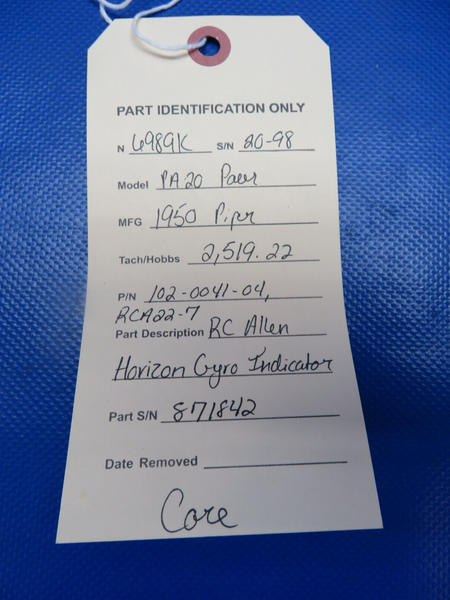 PART IDENTIFICATION ONLY
N 6989K S/N 20-98
Model PA20 Pacer
MFG 1950 Piper
Tach/Hobbs 2,519.22
P/N 102-0041-04,
RCA22-7
Part Description RC Allen
Horizon Gyro Indicator
Part S/N 871842
Date Removed
Core